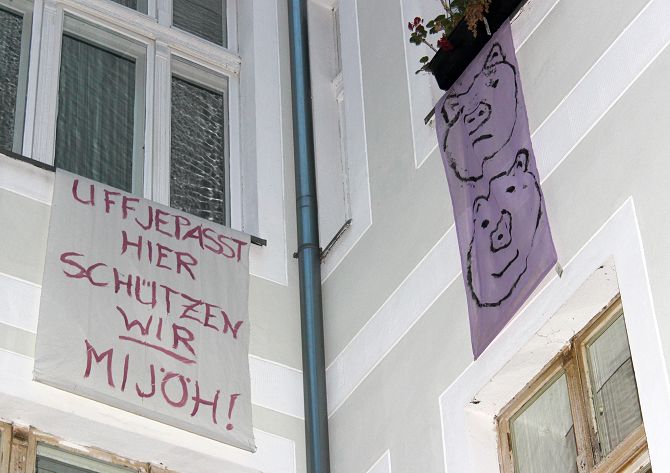 UFFJEPASST
HIER
SCHÜTZEN
WIR
MIJÖH!